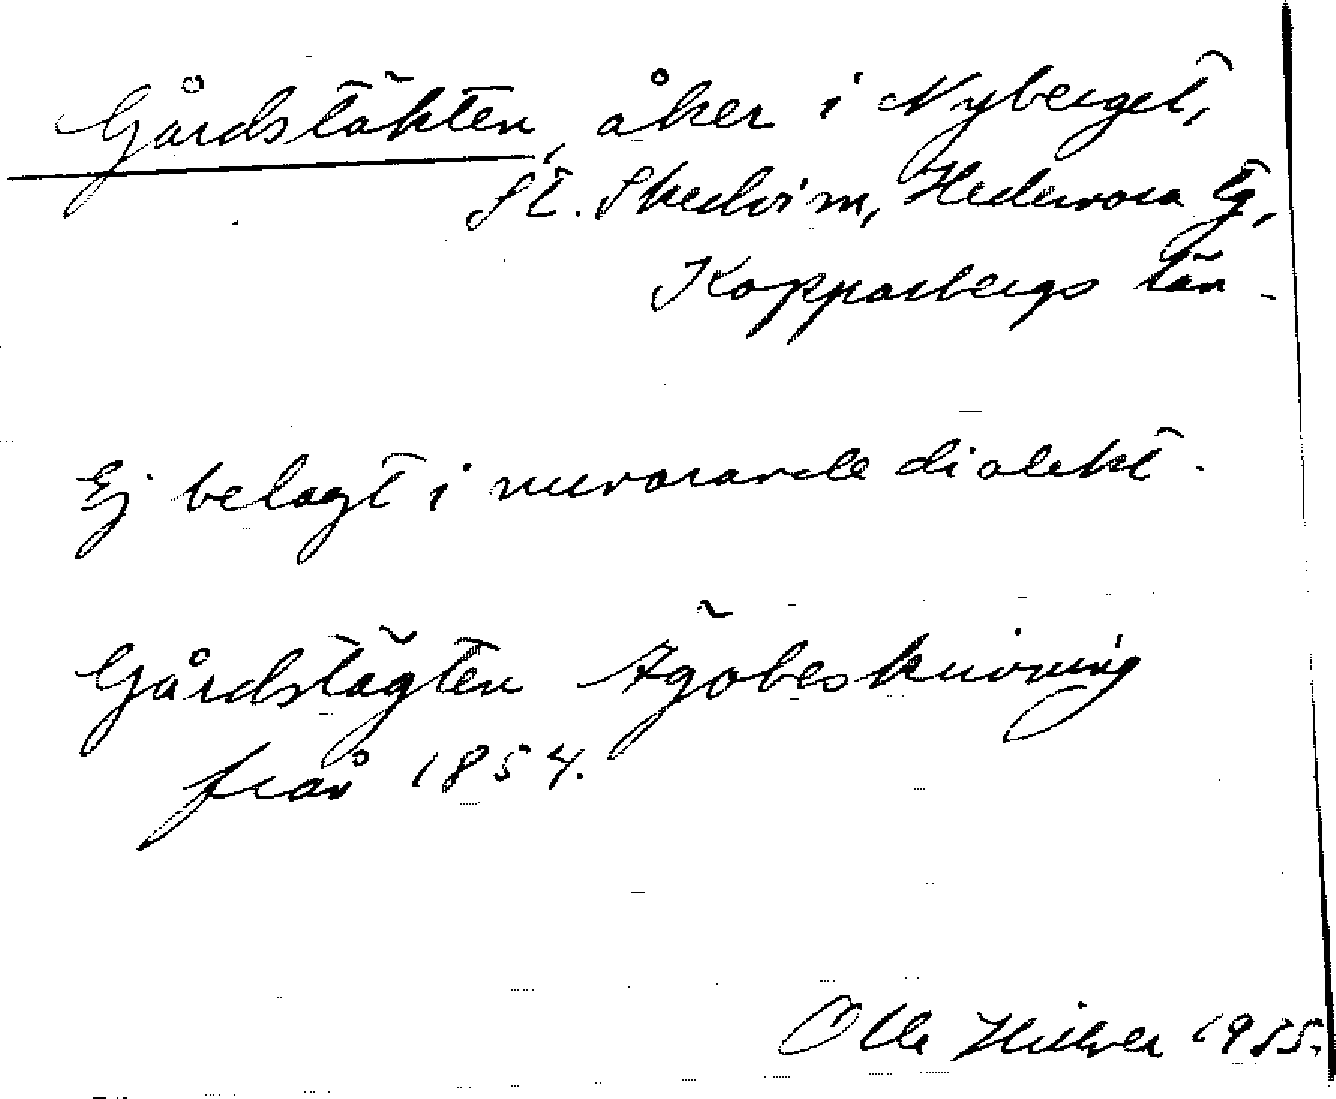 Gårdstäkten, åker i Nyberget,
St. Skedvi sn, Hedemora tg,
Kopparbergs län.
Ej belagt i nuvarande dialekt.
Gårdstägten Ägobeskrivning
från 1854.
Olle 1955.